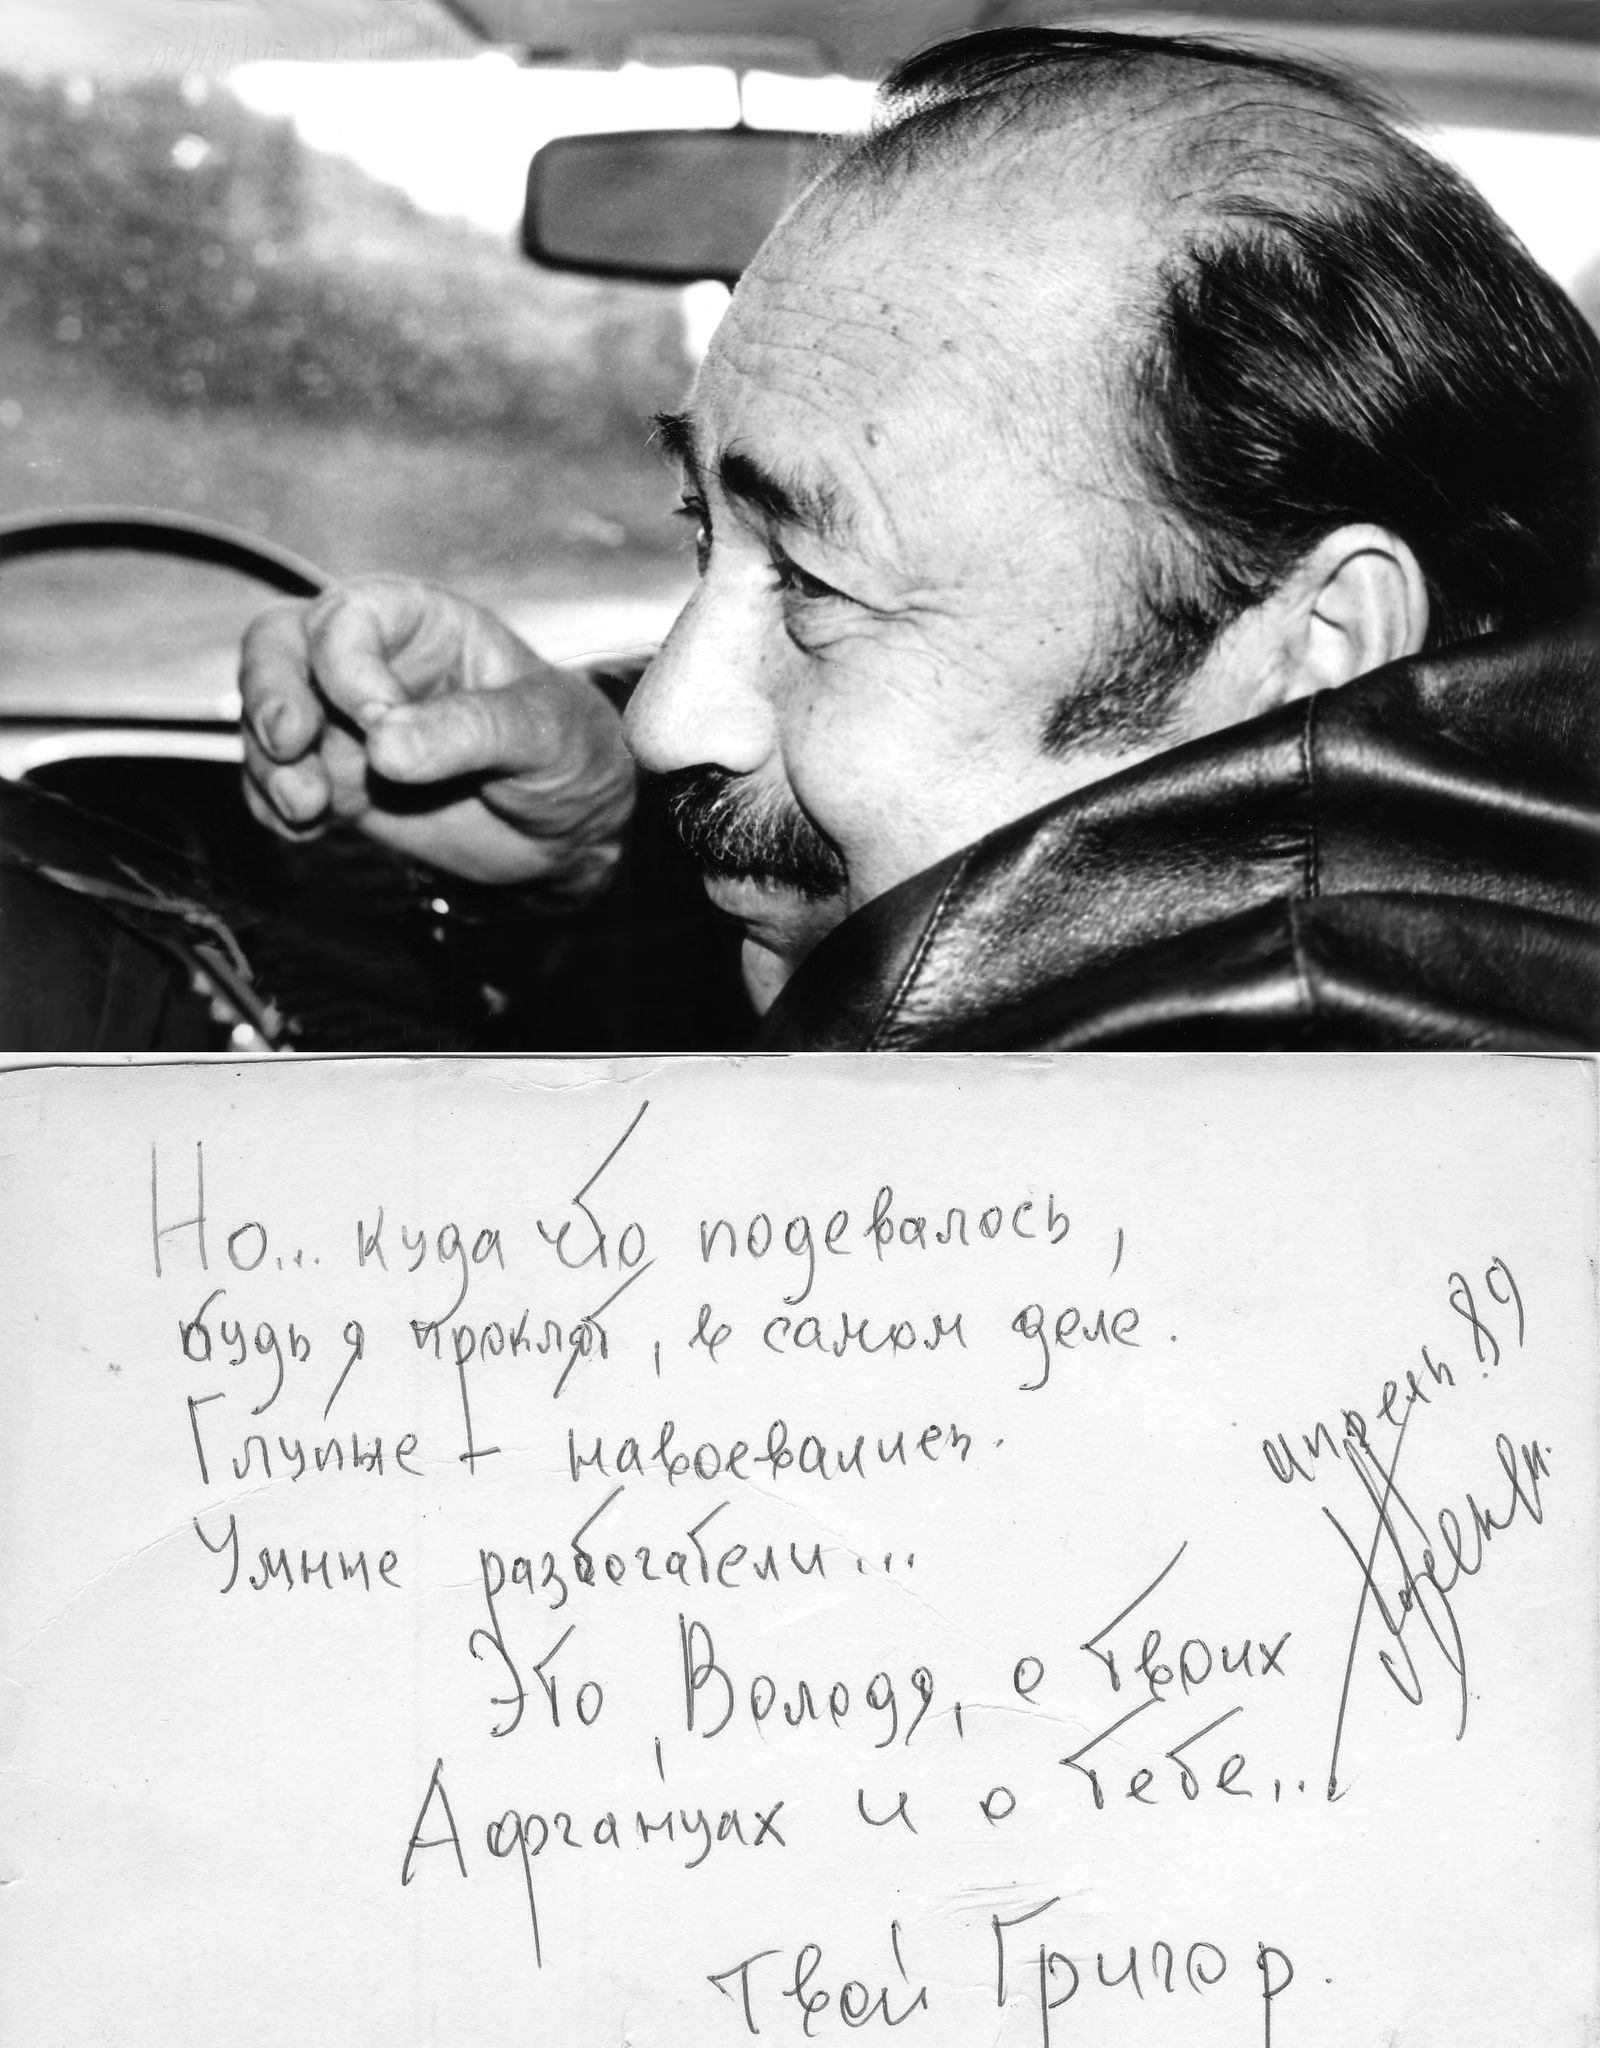 Но... куда что подевалось,
будь я проклят, в самом деле.
Глупые – навоевались.
Умные разбогатели...
Это, Володя, о твоих
Афганцах и о тебе...
твой Григор.
апрель 89